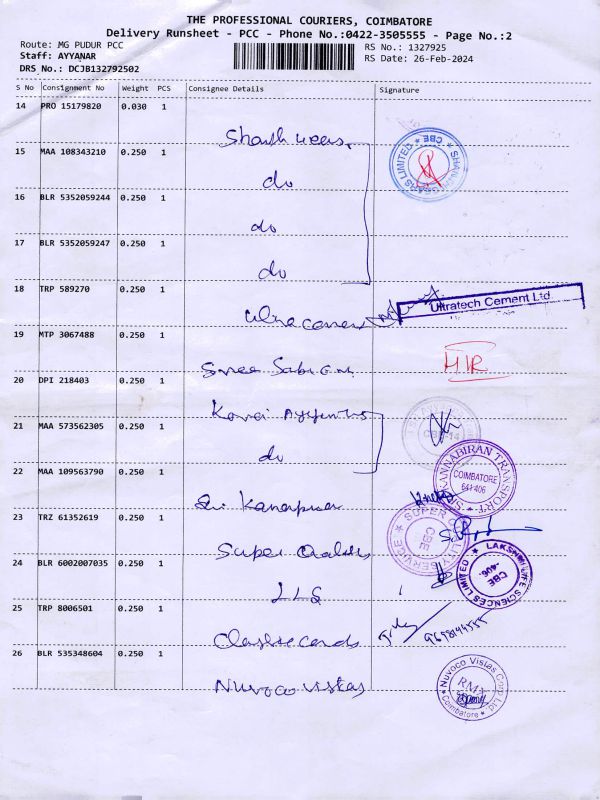 THE PROFESSIONAL COURIERS, COIMBATORE
Delivery Runsheet - PCC - Phone No.:0422-3505555 - Page No.:2
Route: MG PUDUR PCC
RS No.: 1327925
Staff: AYYANAR
RS Date: 26-Feb-2024
DRS No.: DCJB132792502
S No Consignment No Weight PCS Consignee Details Signature
14 PRO 15179820 0.030 1
15 MAA 108343210 0.250 1
do
16 BLR 5352059244 0.250 1
do
17 BLR 5352059247 0.250 1
do
18 TRP 589270 0.250 1
Ultratech Cement Ltd
19 MTP 3067488 0.250 1
Sree
20 DPI 218403 0.250 1
Kovai
21 MAA 573562305 0.250 1
do
KANNABIRAN TRANSPORT
COIMBATORE
641 406
22 MAA 109563790 0.250 1
Sri
23 TRZ 61352619 0.250 1
Super
SUPER QUALITY SERVICE
CBE
24 BLR 6002007035 0.250 1
LLS
LAKSHMI LIFE SCIENCES LIMITED
CBE
-406.
25 TRP 8006501 0.250 1
26 BLR 535348604 0.250 1
Nuvoco vistas
Nuvoco Vistas Corp Ltd
RMX
Coimbatore